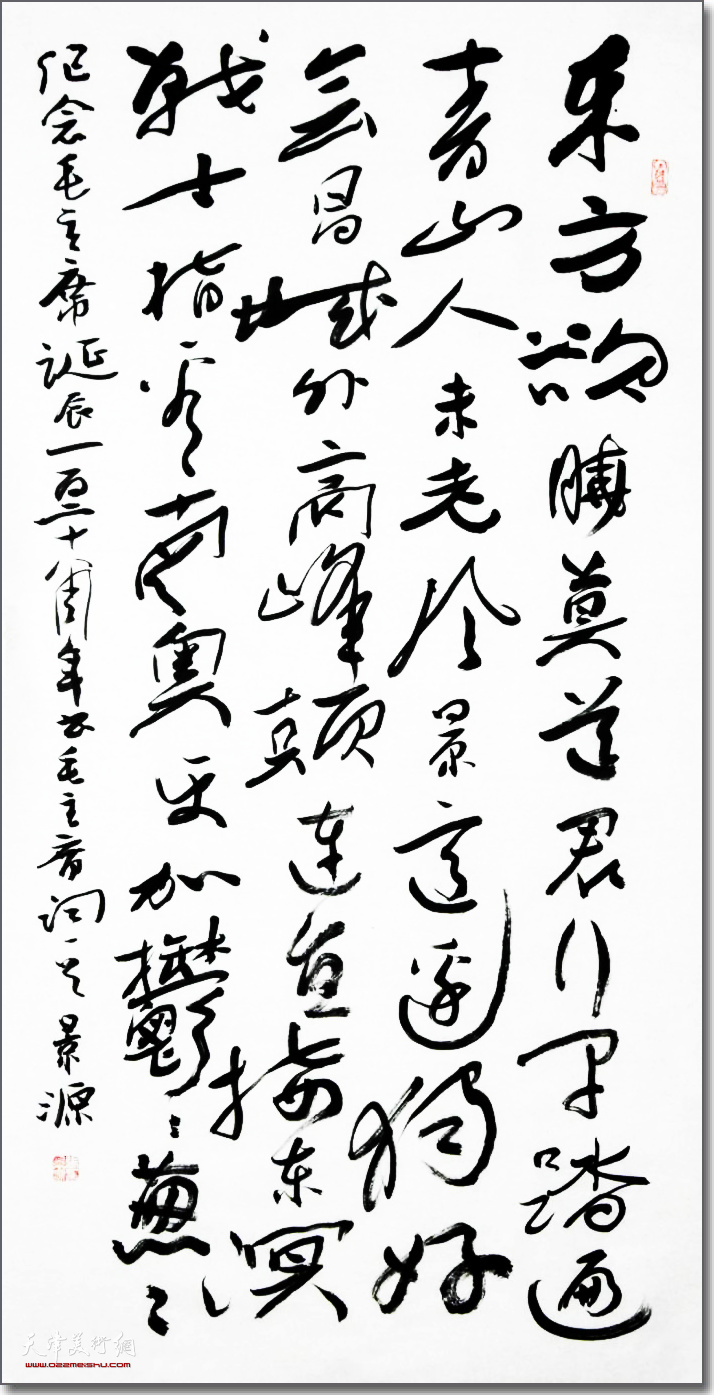 東方欲曉莫道君行早踏遍
青山人未老风景這邊獨好
会昌城外高峰颠連直接东溟
戰士指看南粤更加鬱〻葱〻
纪念毛主席诞辰一百三十周年书毛主席词一首 景源
天津美術網
www.022meishu.com